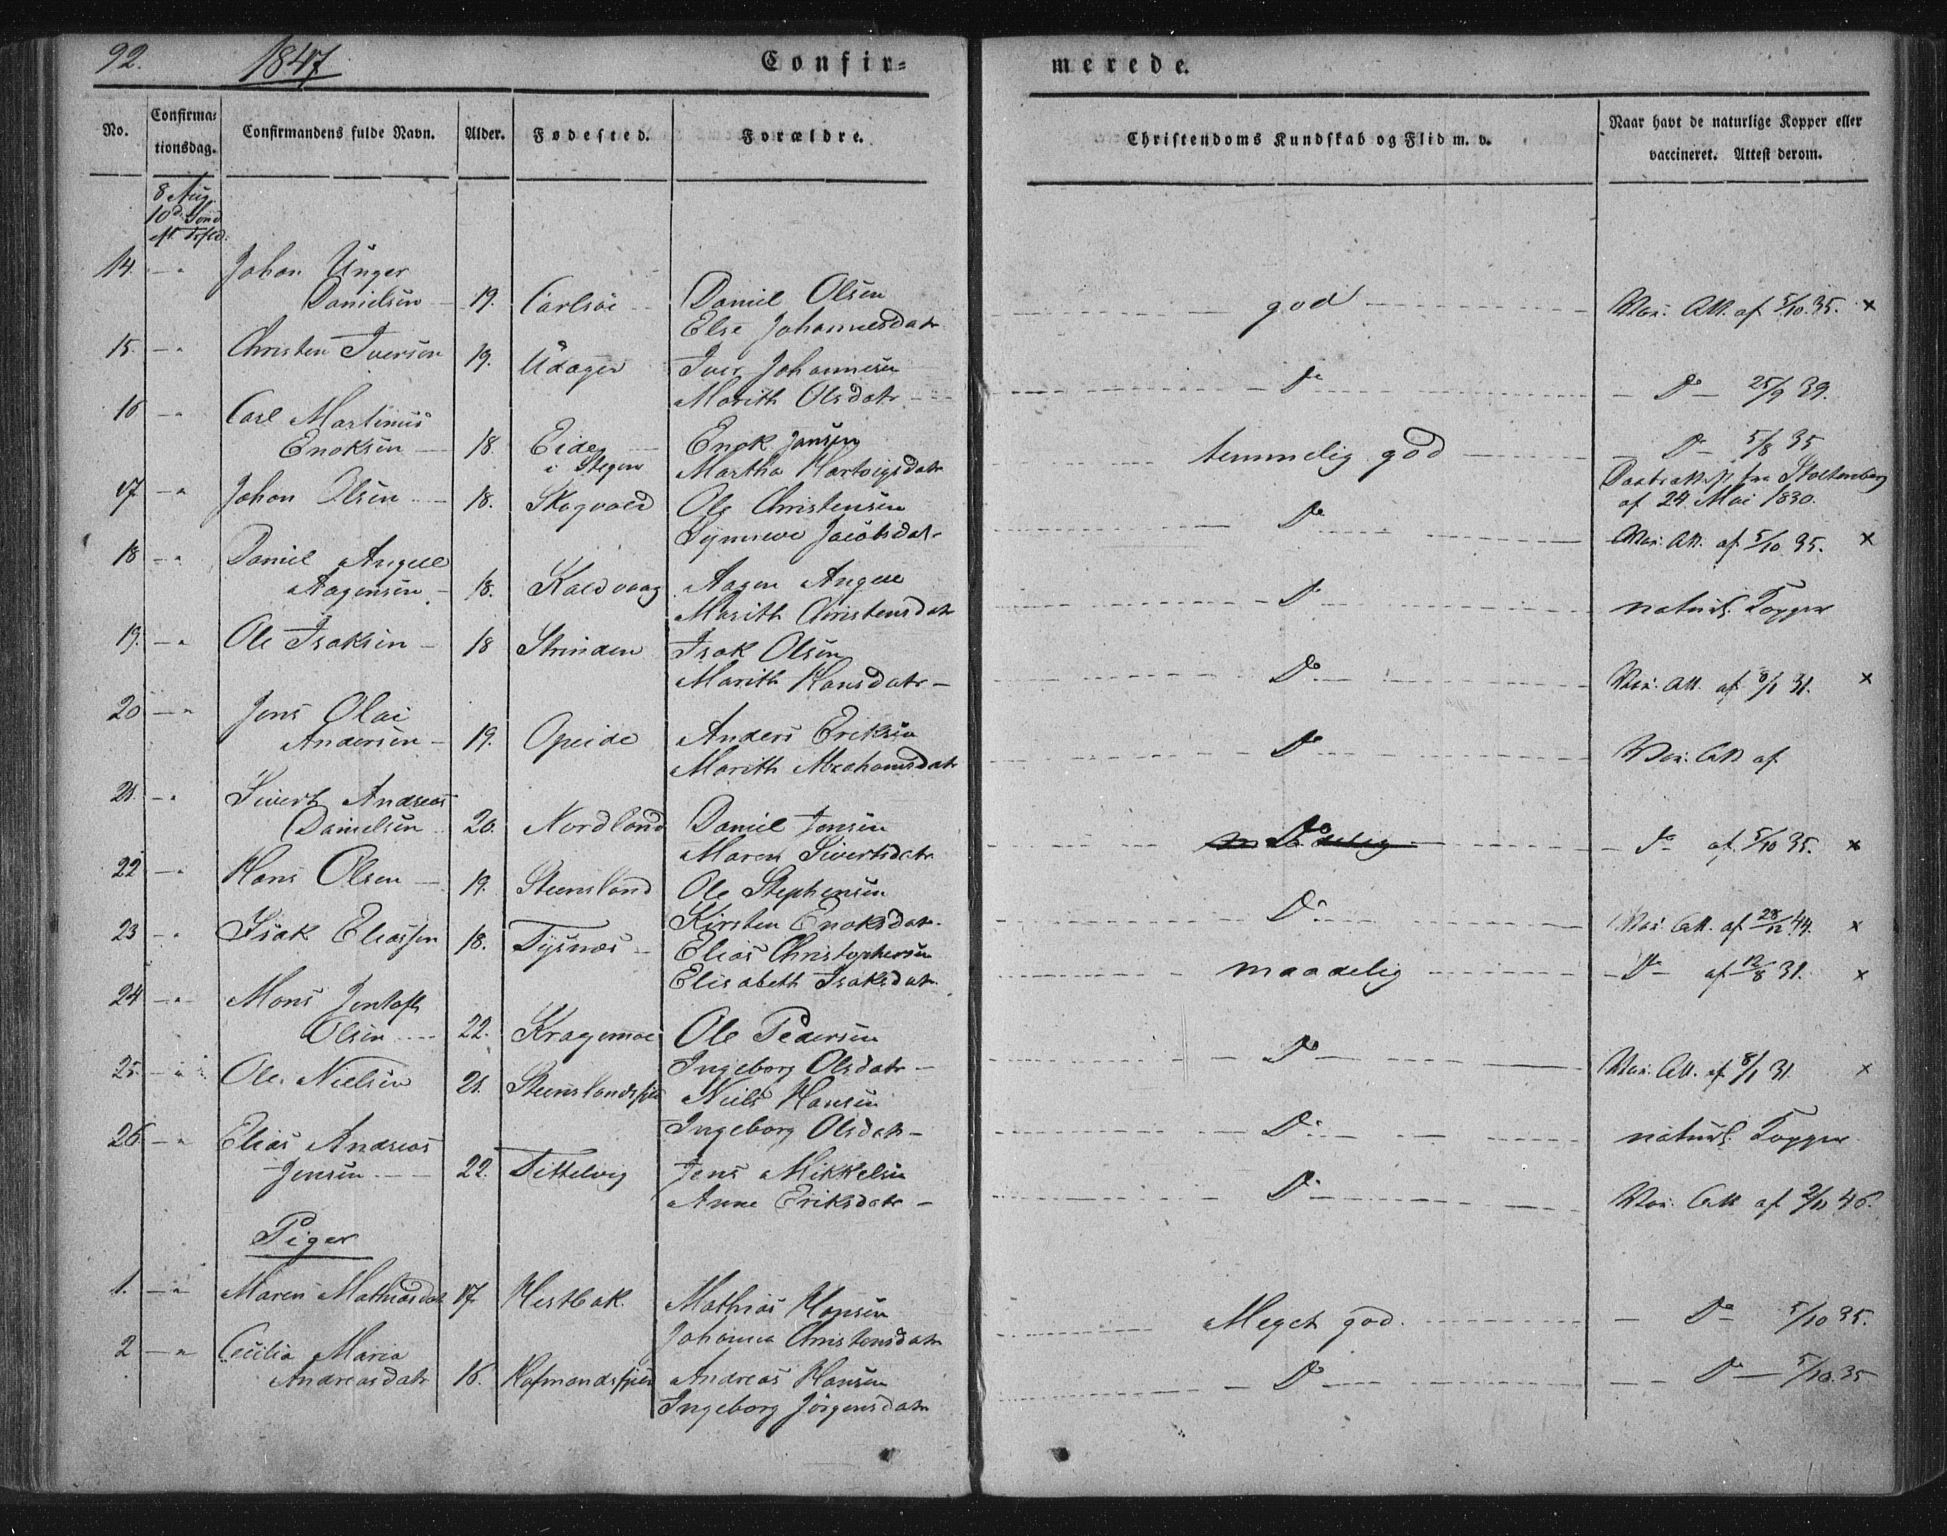 92. 1847 Confir= merede.
No. Confirma= tionsdag. Confirmandens fulde Navn. Alder. Fødested. Forældre. Christendoms Kundskab og Flid m. v. Naar havt de naturlige Kopper eller vaccineret. Attest derom.
8 Aug.
10d Sønd
14. -"- Johan Unger
Danielsen - 19. Carlsöe Daniel Olsen god Vac. Att. af 5/10. 35. x
Else Johannesdatr
15. -"- Christen Iversen 19. Iver Johannesen Do - Do - 25/9 39.
Marith Olsdatr
16 -"- Carl Martinus
Enoksen 18 Eide Enok Jansen temmelig god - Do - 5/8 35
i Stegen Martha Hartvigsdatr
17. -"- Johan Olsen 18. Skogvold Ole Christensen Do fra Stoltenberg
af 24 Mai 1830.
Synneve Jacobsdatr Vac. Att. af 5/10 35. x
18 -"- Daniel Angell
Aagensen - 18. Kaldvaag Aagen Angell Do naturl. Kopper
Marith Christensdatr
19. -"- Ole Isaksen - 18 Strinden Isak Olsen Do Vac. Att. af 8/1 31. x
Marith Hansdatr -
20 -"- Jens Olai
Andersen - 19. Opeide Anders Eriksen Do Vac. Att af
Marith Abrahamsdatr
21. -"- Sivert Andreas
Danielsen 20. Nordland Daniel Jensen Do - Do af 5/10 35. x
Maren Sivertsdatr
22 -"- Hans Olsen - 19. Steensland Ole Stephensen Do Vac. Att. af 28/12 44. x
Kirsten Enoksdatr.
23 -"- Isak Eliassen 18. Tysnæs - Elias Christophersen maadelig - Do - af 12/8 31. x
Elisabeth Isaksdatr.
24 -"- Mons Jentoft
Olsen 22. Kragemoe Ole Pedersen Do Vac. Att. af 8/1 31. x
Ingeborg Olsdatr -
25. -"- Ole Nielsen 21. Niels Hansen Do naturl. Kopper
Ingeborg Olsdatr -
26 -"- Elias Andreas
Jensen 22. Tittelvig Jens Mikkelsen Do Vac. Att af 2/11 46.
Anne Eriksdatr -
Piger
1. -"- Maren Mathiasdatr 17. Hestbak. Mathias Hansen Meget god. - Do - 5/10 35.
Johanna Christensdatr
2 -"- Cecilia Maria
Andreasdatr 16. Andreas Hansen Do - Do - 5/10. 35
Ingeborg Jörgensdatr